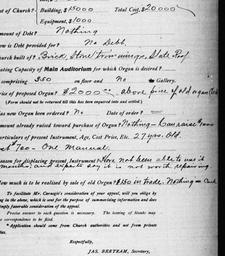 of Church? Building, $15000 Total Cost, $20000
Equipment, $1000
Amount of Debt? Nothing
How is Debt provided for? No Debt.
Church built of? Brick, Stone Trimmings, Slate Roof
Seating Capacity of Main Auditorium for which Organ is desired?
comprising 350 on floor and No Gallery.
Price of proposed Organ? $2000 above price of old organ
(Form should not be returned till this has been inquired into and settled)
Has new Organ been ordered? No Date of order?
Amount already raised toward purchase of Organ? Nothing
Particulars of present Instrument, Age, Cost Price, Etc. 27 yrs. old
One Manual
Reason for displacing present Instrument? Have not been able to use it
months and expects say it is not worth repairing
How much is to be realised by sale of old Organ? $150 in trade. Nothing in Cash
To facilitate Mr. Carnegie's consideration of your appeal, will you oblige by
in the above, which is sent for the purpose of summarising information and does
imply favorable consideration of the appeal.
Precise answer to each question is necessary. The issuing of blanks may
correspondence to be filed.
Application should come from Church authorities and not from private
Respectfully,
JAS. BERTRAM, Secretary,